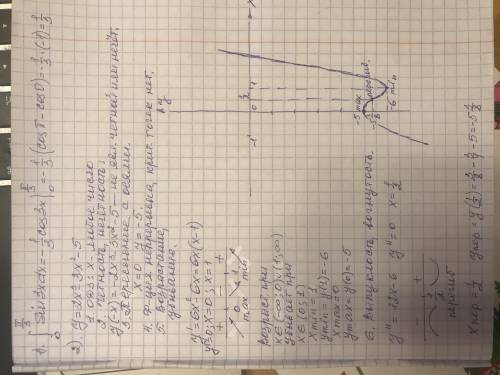 1. ∫₀^(π/3) sin 3x dx = -1/3 cos 3x |₀^(π/3) = -1/3 (cos π - cos 0) = -1/3 · (-1) = 1/3
2) y = 2x³ - 3x² - 5
1. ОДЗ: x - любое число
2. Четность, нечётность.
y(-x) = -2x³ - 3x² - 5 — не явл. четной или нечёт.
3. Пересечение с осями.
x = 0 y = -5.
4. Ф-ция непрерывна, крит. точек нет.
5. Возрастание,
убывание.
y' = 6x² - 6x = 6x(x-1)
y' = 0; x = 0; x = 1
+ - +
0 1
max min
Возраст. при
x ∈ (-∞; 0) ∪ (1; ∞)
убывает при
x ∈ (0; 1)
xmin = 1
ymin = y(1) = -6
xmax = 0
ymax = y(0) = -5
6. Выпуклость, вогнутость.
y'' = 12x - 6 y'' = 0 x = 1/2
- +
1/2
перегиб
xпер = 1/2 yпер = y(1/2) = 2/8 - 3/4 - 5 = -5 1/2
y
x
-1
0
1/2
1
-5 max
-5 1/2 перегиб.
-6 min